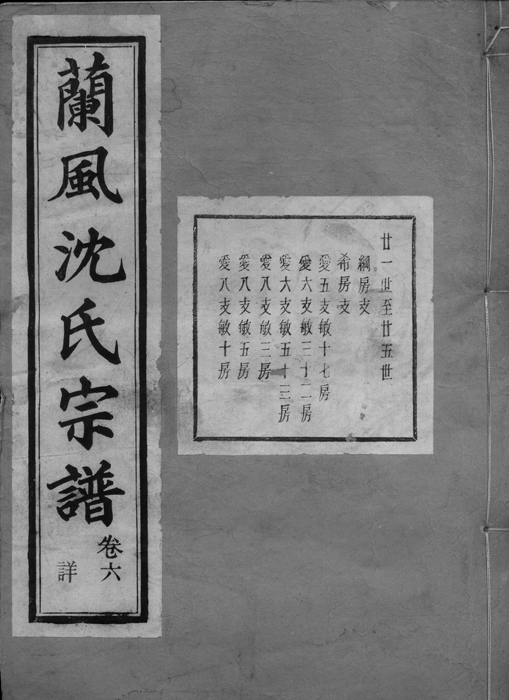 蘭風沈氏宗譜
卷六
詳
廿一世至廿五世
綱房支
希房支
愛五支敏十七房
愛六支敏三十二房
愛六支敏五十三房
愛八支敏三房
愛八支敏五房
愛八支敏十房